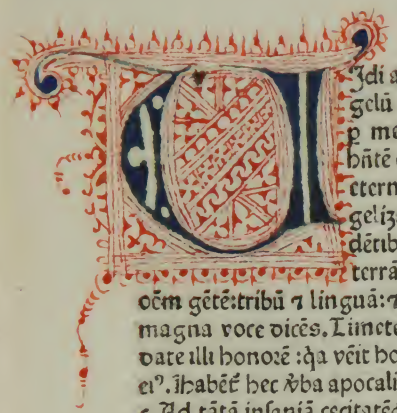 Uidi a
gelū
p me
hn̄tē
etern
geliz
dētib
terrā
oēm gētē:tribū ⁊ linguā:⁊
magna voce dicēs.Timete
date illi honorē:q̇a vēit ho
eiꝰ.Ihabēt̄ hec ṽba apocali